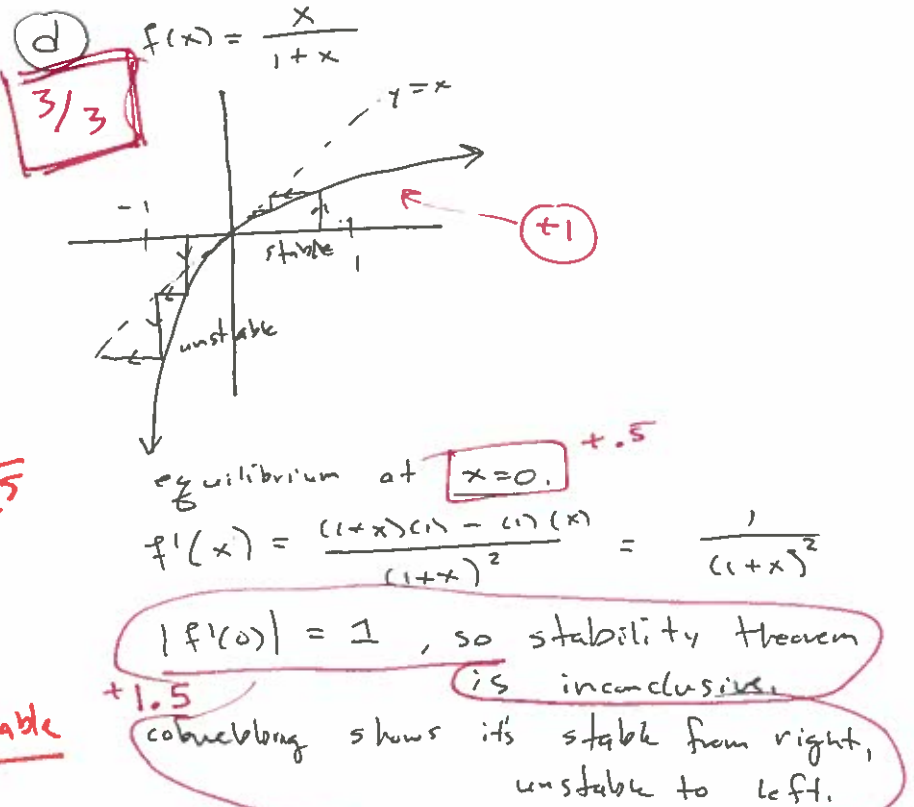 d f(x) = x / 1 + x
3/3
y = x
-1
+1
stable
1
unstable
equilibrium at x=0. +.5
5
f'(x) = (1+x)(1) - (1)(x) / (1+x)² = 1 / (1+x)²
|f'(0)| = 1, so stability theorem
is inconclusive.
+1.5
able
cobwebbing shows it's stable from right,
unstable to left.